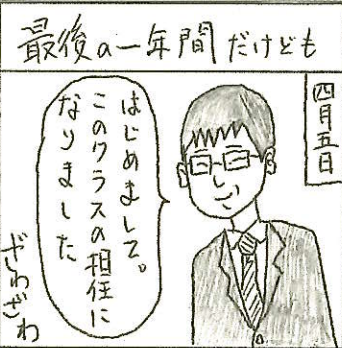 最後の一年間だけども
四月五日
はじめまして。
このクラスの担任に
なりました
ざわざわ